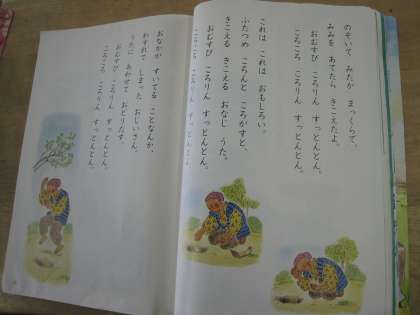 のぞいて みたが まっくらで、
みみを あてたら きこえたよ。
おむすび ころりん すっとんとん。
ころころ ころりん すっとんとん。
これは これは おもしろい。
ふたつめ ころんと ころがすと、
きこえる きこえる おなじ うた。
おむすび ころりん すっとんとん。
ころころ ころりん すっとんとん。
おなかが すいてる ことなんか、
わすれて しまった おじいさん。
うたに あわせて おどりだす。
おむすび ころりん すっとんとん。
ころころ ころりん すっとんとん。